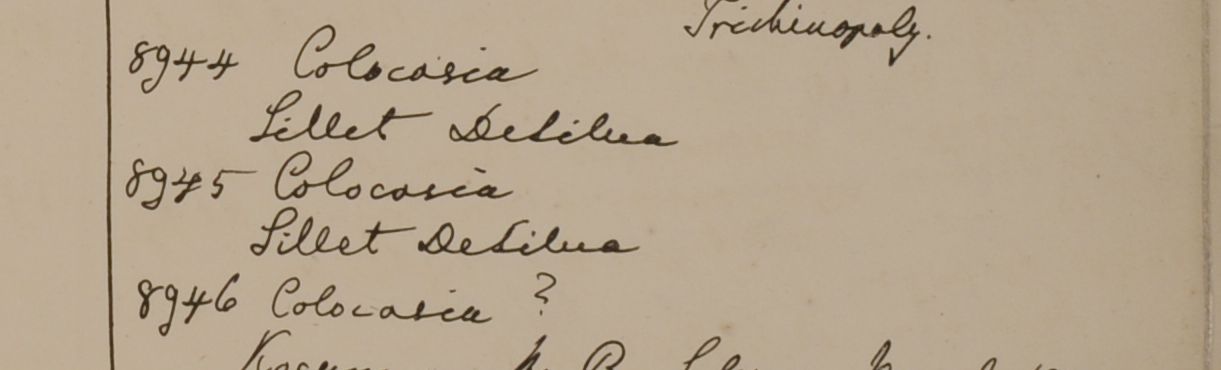 Trichinopoly.
8944 Colocasia
Sillet DeSilva
8945 Colocasia
Sillet DeSilva
8946 Colocasia ?